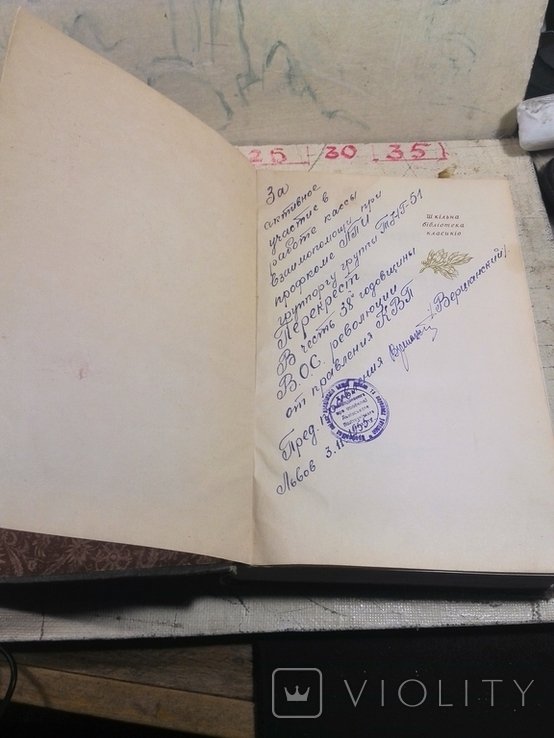 25 30 35
За
активное
участие в
работе кассы
Взаимопомощи при
профкоме
группоргу группы
Перекрест
В честь 38й годовщины
В.О.С. революции
от правления КВП
Пред. правления /Вершанский/
Львов 3.11.1955г.
Шкільна
бібліотека
класиків
VIOLITY